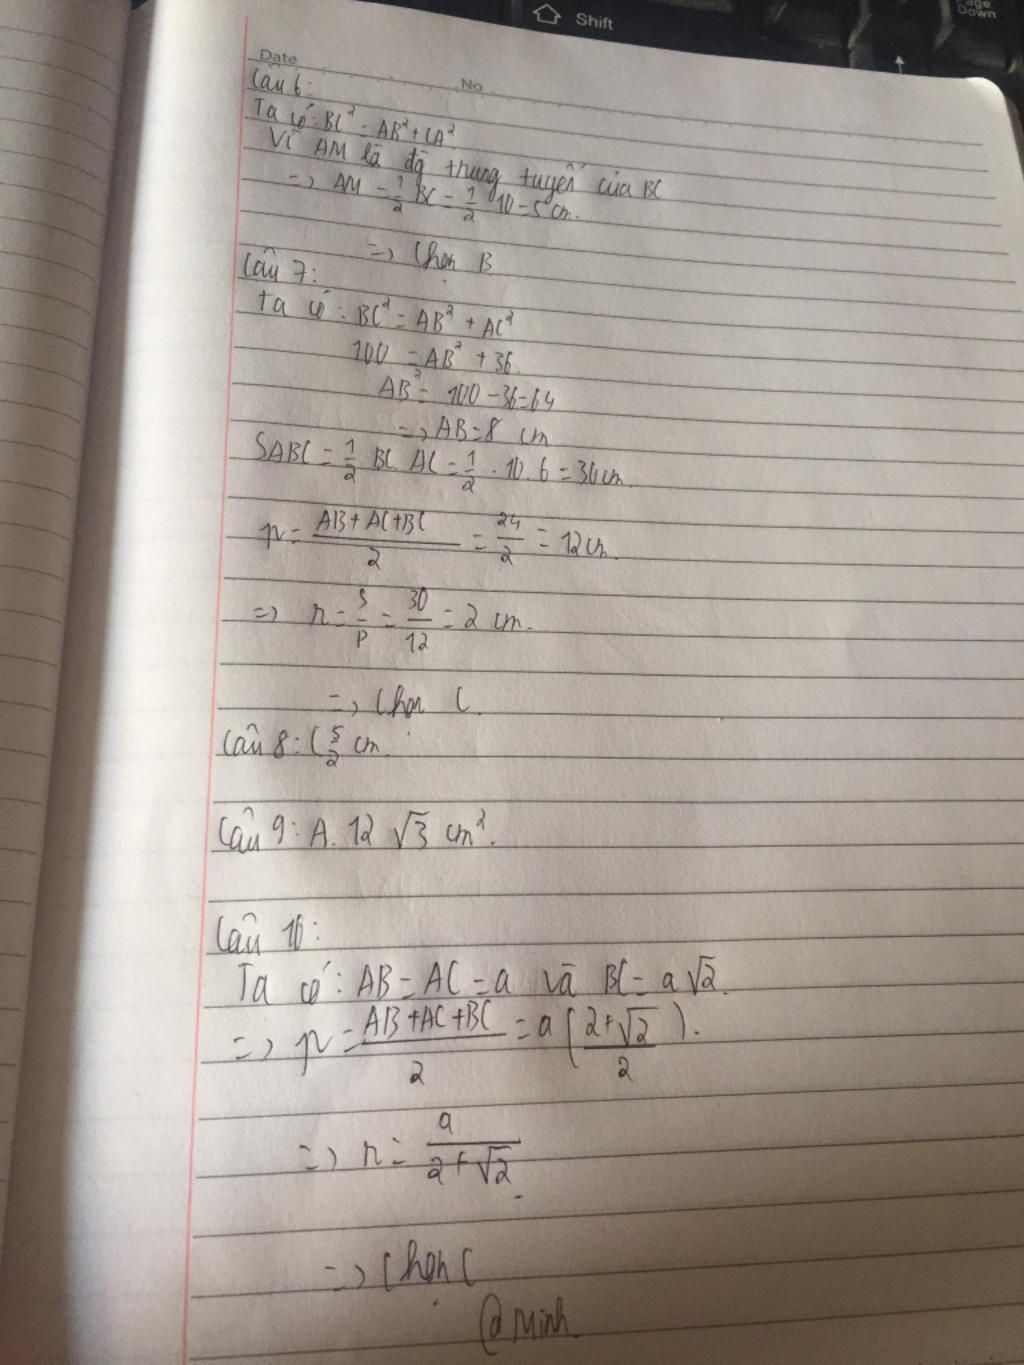 Shift
Page Down
Date
No
Câu 6:
Ta có: BC² = AB² + CA²
Vì AM là đg trung tuyến của BC
=> AM = 1/2 BC = 1/2 10 = 5 cm.
=> Chọn B
Câu 7:
Ta có: BC² = AB² + AC²
100 = AB² + 36
AB² = 100 - 36 = 64
=> AB = 8 cm
SABC = 1/2 BC. AC = 1/2 . 10. 6 = 30 cm.
p = (AB + AC + BC)/2 = 24/2 = 12 cm.
=> r = S/P = 30/12 = 2 cm.
=> Chọn C.
Câu 8: C 5/2 cm.
Câu 9: A. 12 √3 cm².
Câu 10:
Ta có: AB = AC = a và BC = a √2.
=> p = (AB + AC + BC)/2 = a ((2+√2)/2).
=> r = a/(2+√2).
=> Chọn C
@ Minh